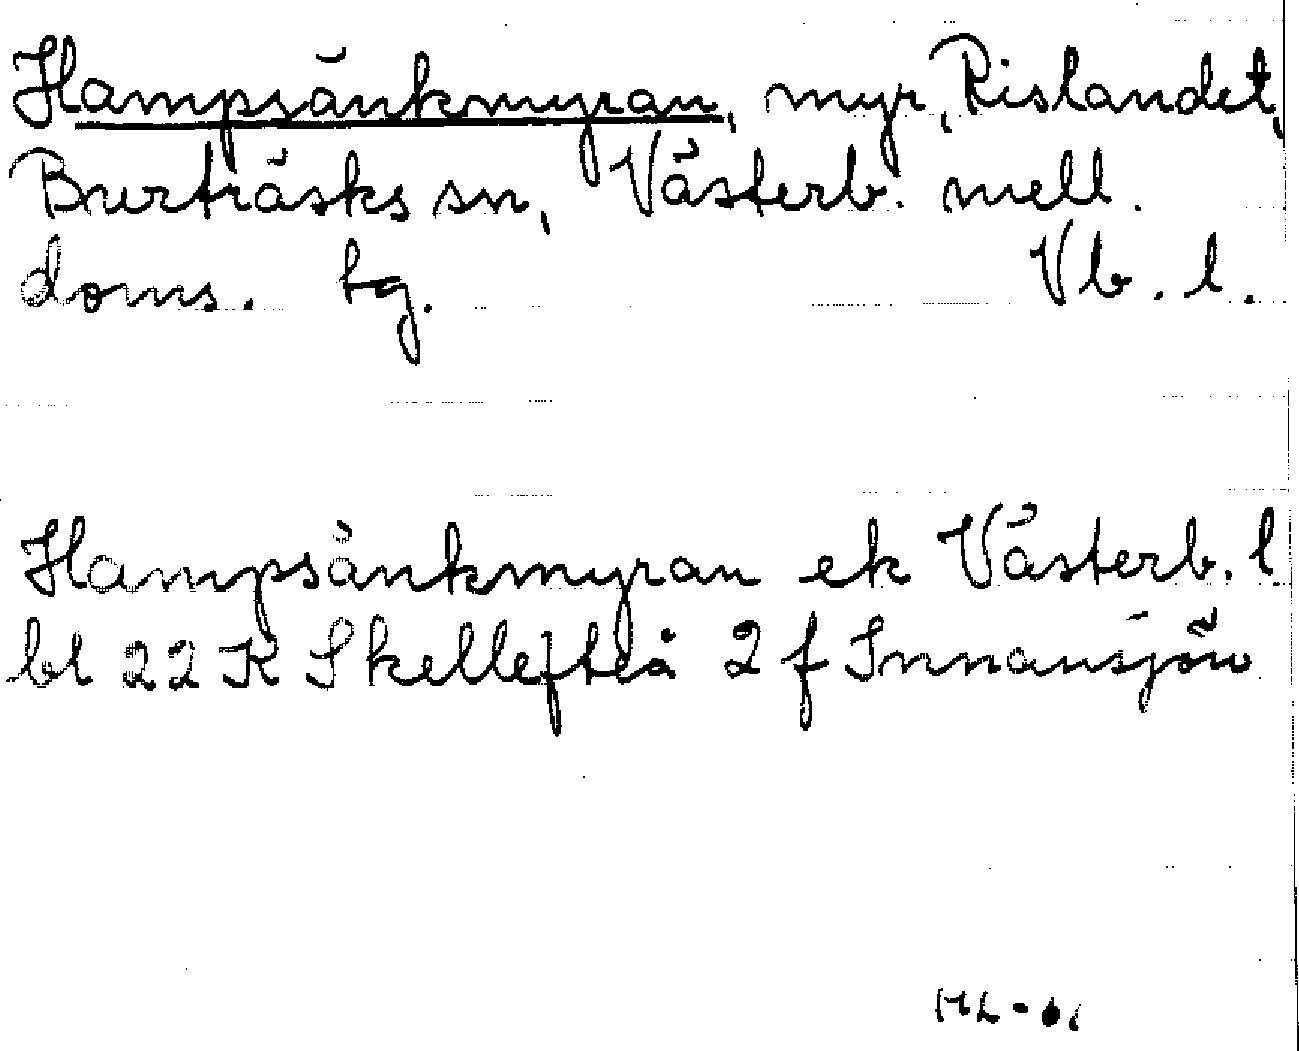 Hampsänkmyran, myr, Rislandet,
Burträsks sn, Västerb. mell.
doms. tg. Vb. l.
Hampsänkmyran ek Västerb. l
bl 22 K Skellefteå 2 f Innansjön